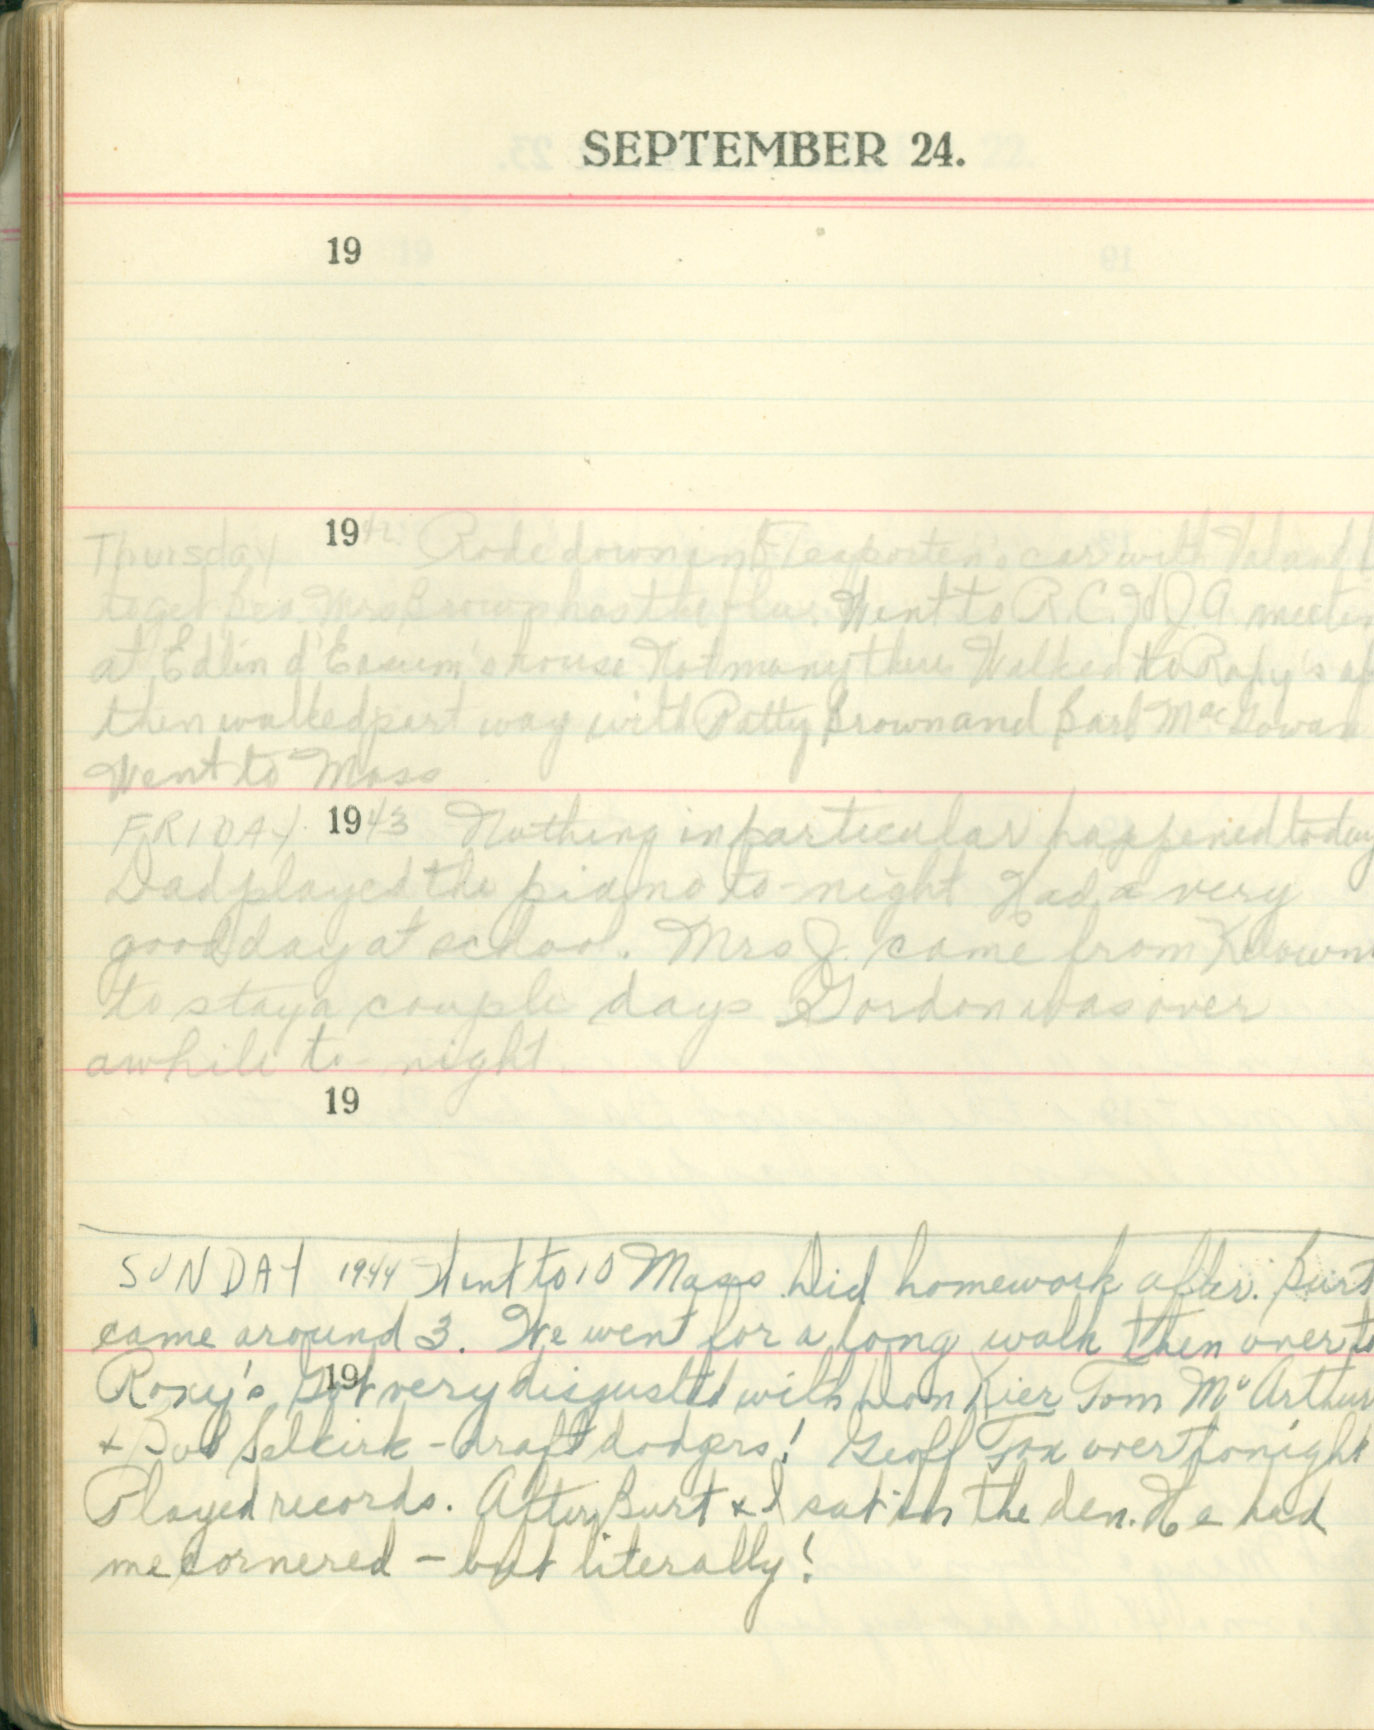 SEPTEMBER 24.
19
Thursday 1942 Rode down in Teaporten's car with Val and
to get Mrs Brown has the flu. Went to R.C.H.J.A. meeting
at Edlin d'Easum's house Not many there Walked to Roxy's
then walked part way with Patty Brown and Barb MacGowan
Went to Mass
FRIDAY 1943 Nothing in particular happened today
Dad played the piano to-night Had a very
good day at school. Mrs J. came from Kelowna
to stay a couple days Gordon was over
awhile to-night.
19
SUNDAY 1944 Went to 10 Mass Did homework after. Burt
came around 3. We went for a long walk then over to
19
Roxy's Got very disgusted with Don Kier Tom McArthur
+ Bob Selkirk - draft dodgers! Geoff Fox over tonight
Played records. After Burt & I sat in the den. He had
me cornered - but literally!